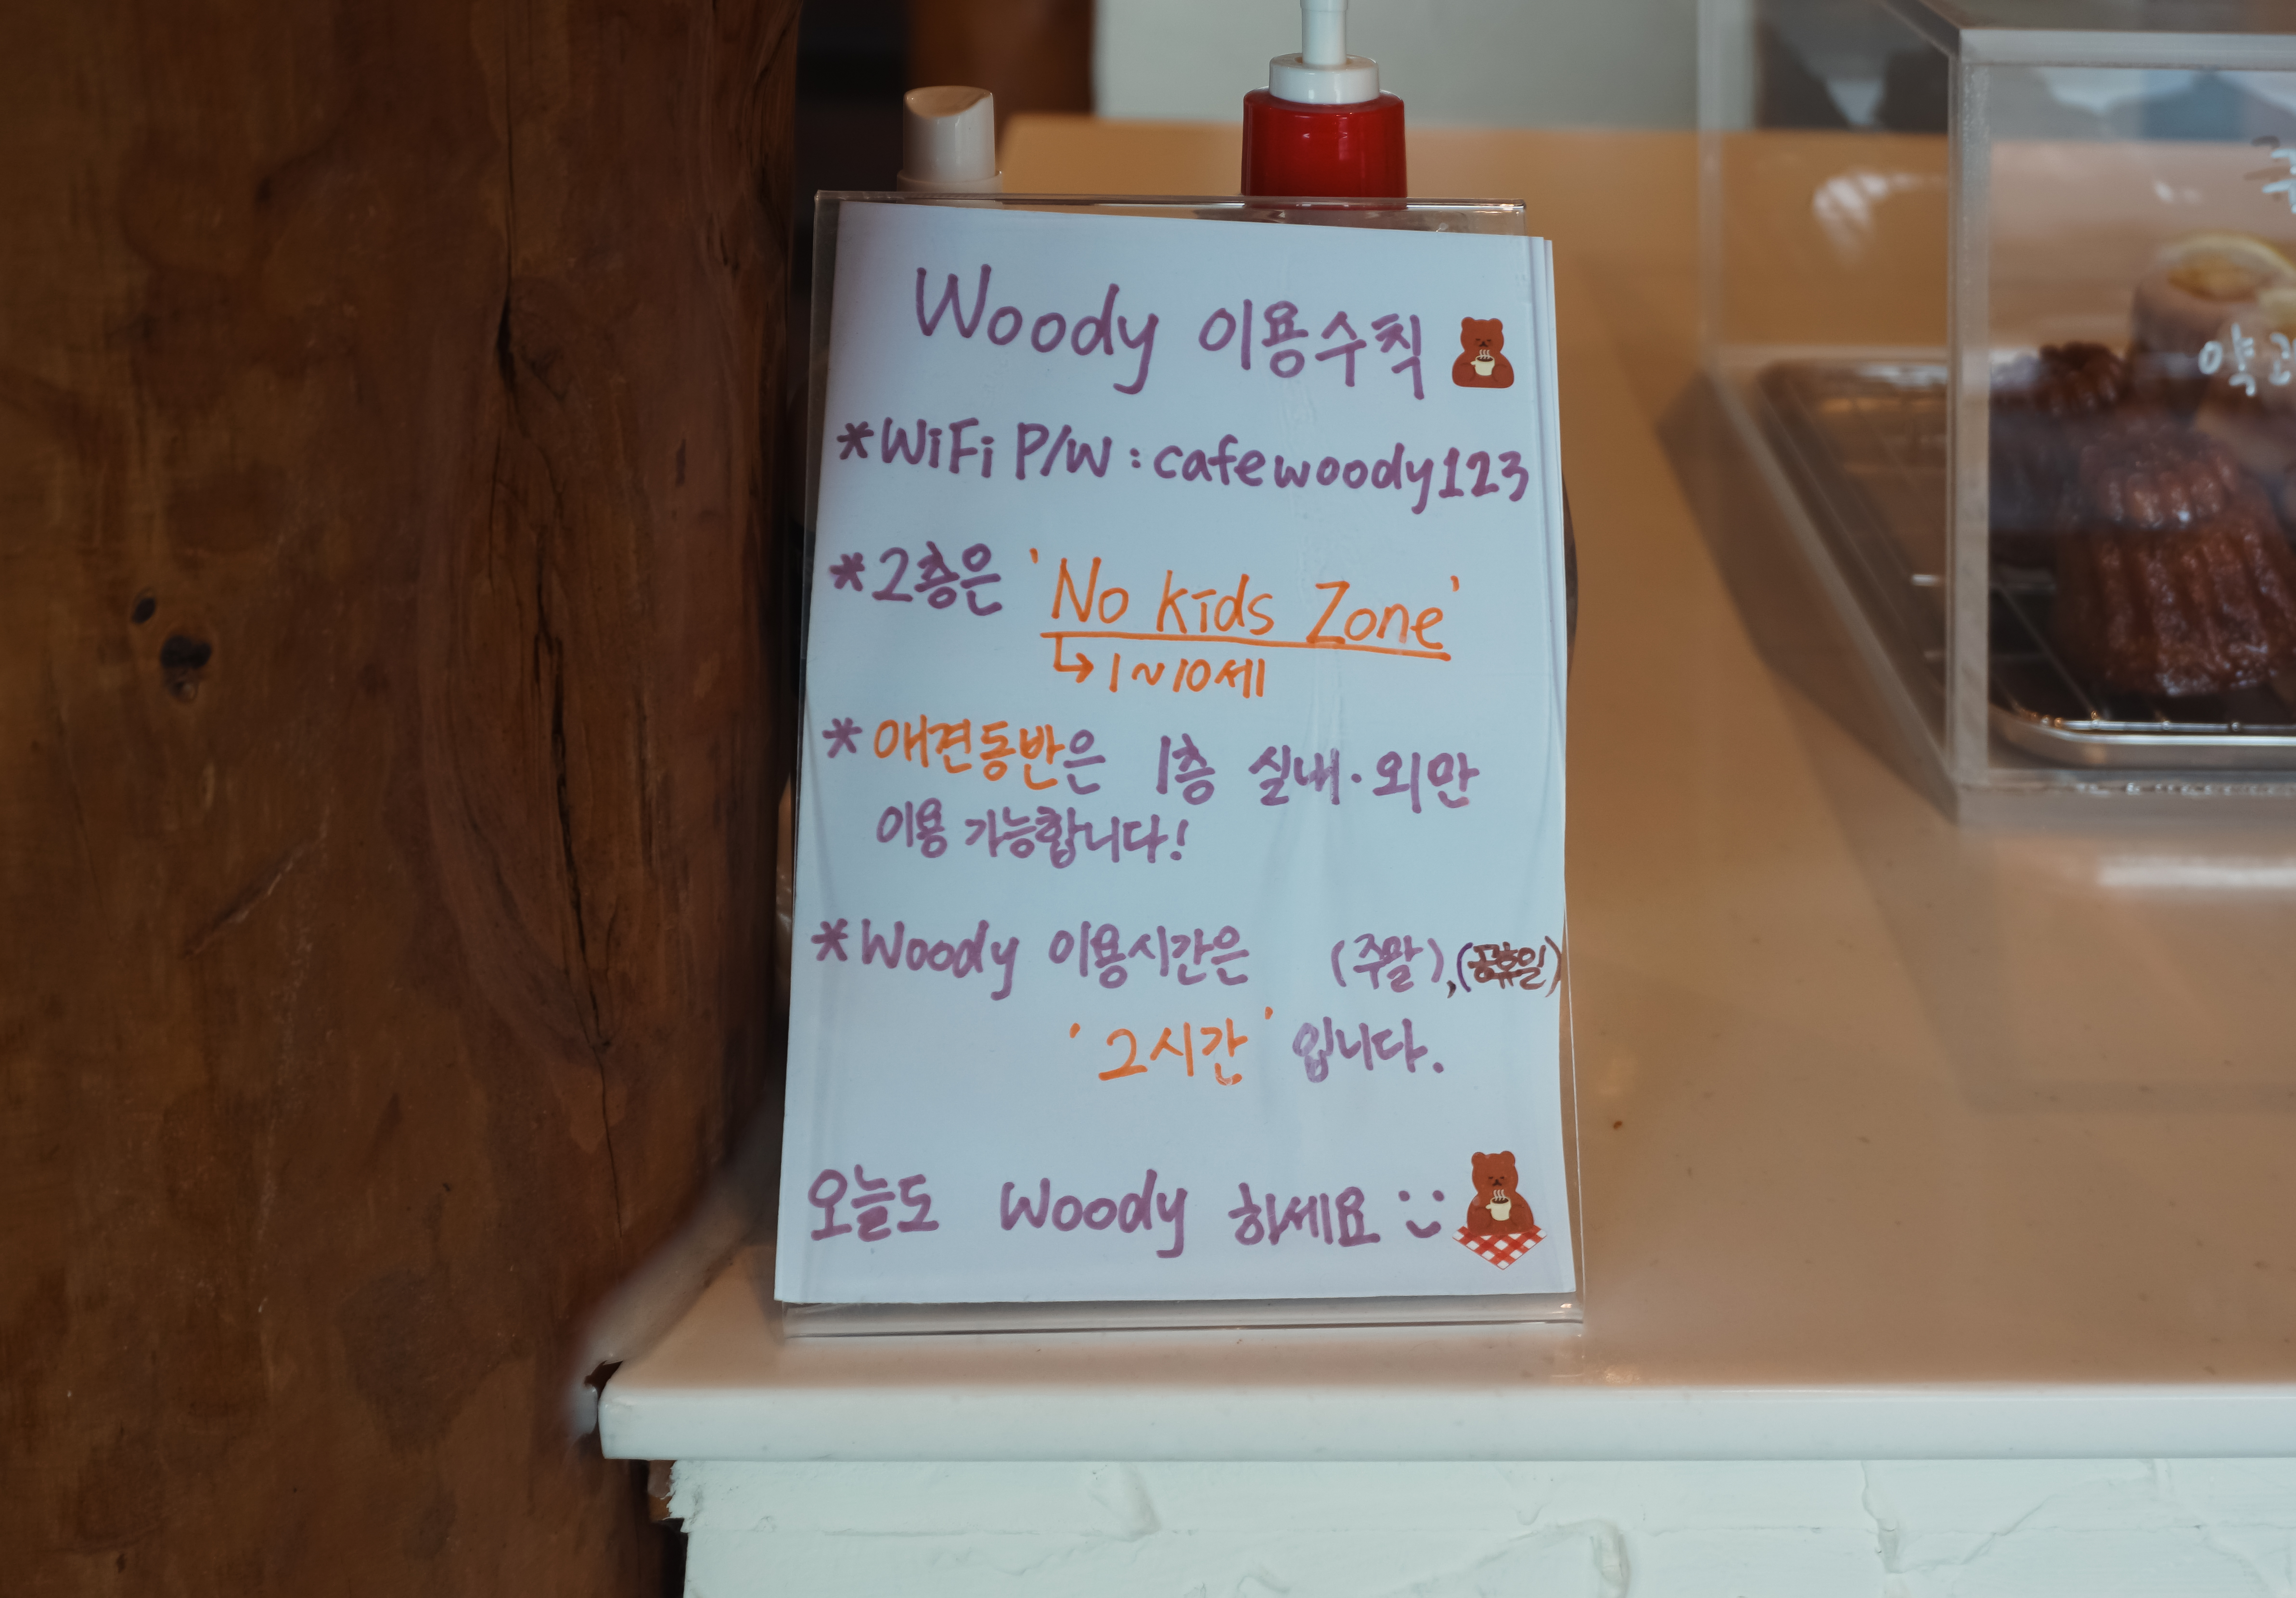 Woody 이용수칙
*WiFi P/W : cafewoody123
*2층은 'No kids Zone'
↳ 1~10세
* 애견동반은 1층 실내·외만
이용 가능합니다!
*Woody 이용시간은 (주말),(공휴일)
'2시간' 입니다.
오늘도 Woody 하세요 :)